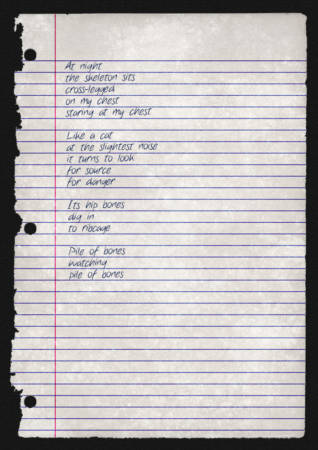 At night
the skeleton sits
cross-legged
on my chest
staring at my chest
Like a cat
at the slightest noise
it turns to look
for source
for danger
Its hip bones
dig in
to ribcage
Pile of bones
watching
pile of bones